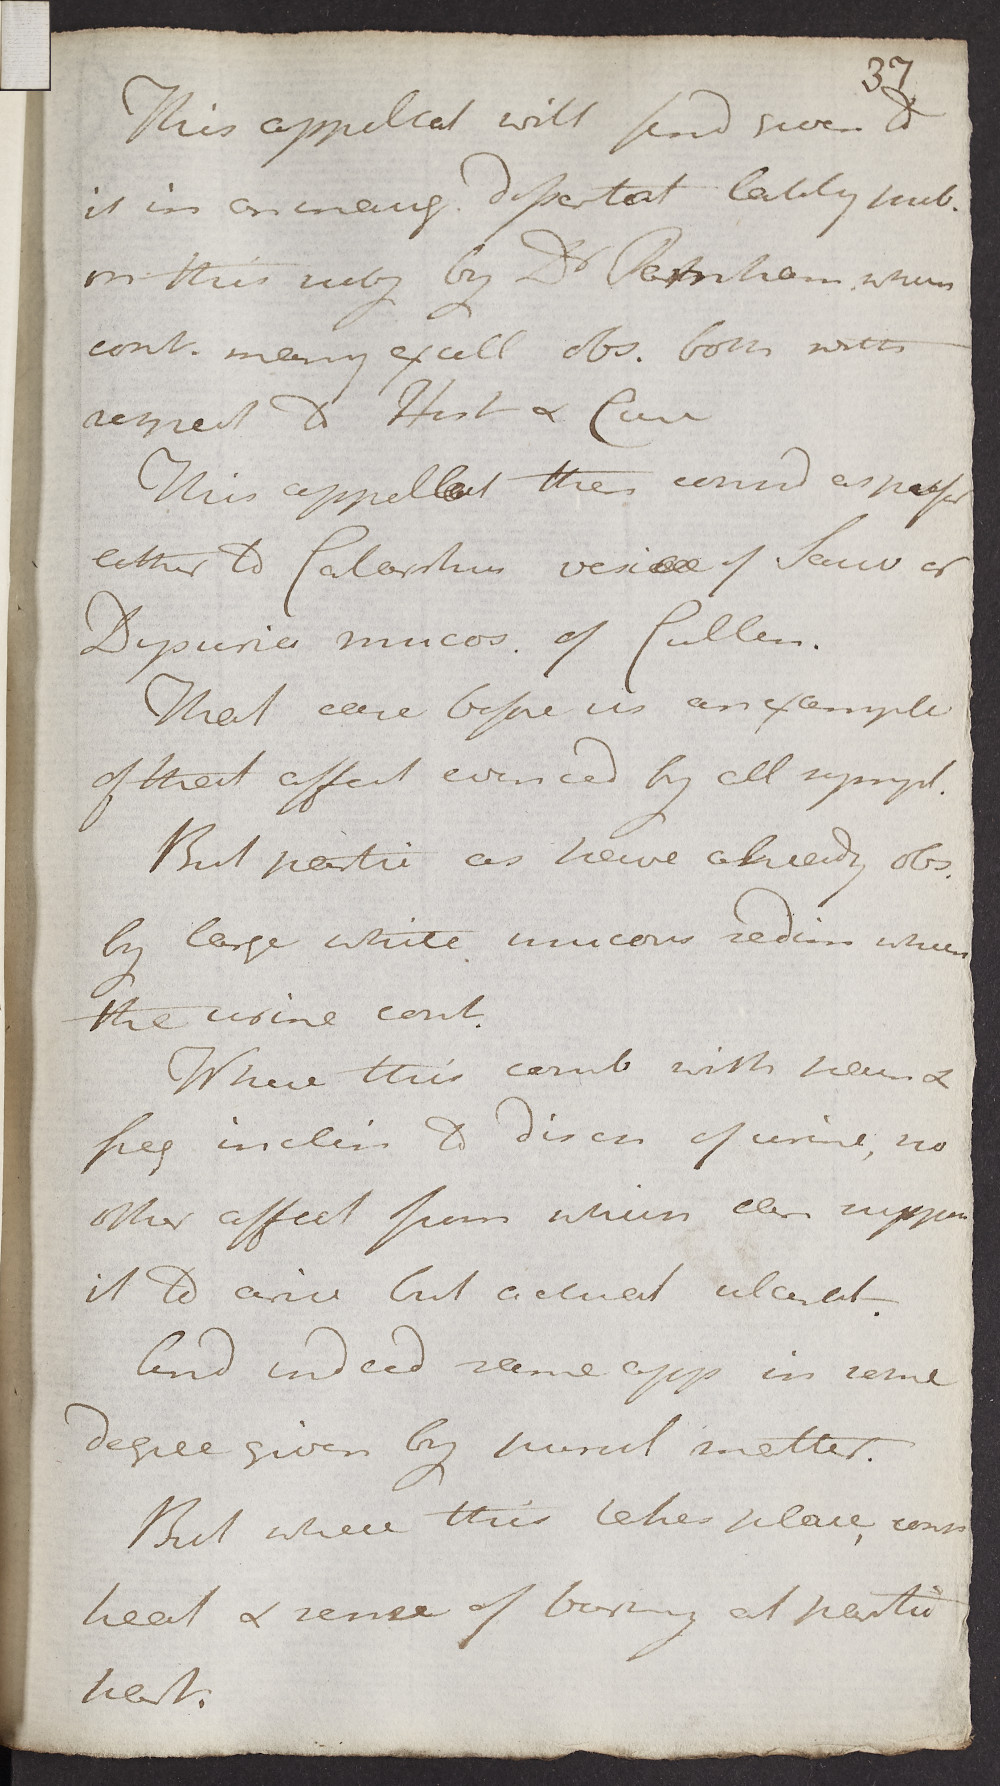 37
This appellat will find given to
it in an inaug. dissertat lately pub.
on this subj by Dr Parnham which
cont. many excell obs. both with
respect to Hist & Cure
This appellat then consid as prefer
either to Catarrhus vesicae of Sauv or
Dysuria mucos. of Cullen.
That case before us an example
of that affect evinced by all sympt.
But partic as have already obs.
by large white mucous sedim which
the urine cont.
Where this comb with pain &
freq inclin to disch of urine, no
other affect from which can suppose
it to arise but actual ulcerat.
And indeed same app in some
degree given by purul matter.
But where this takes place, cons
heat & sense of burning at partic
part.